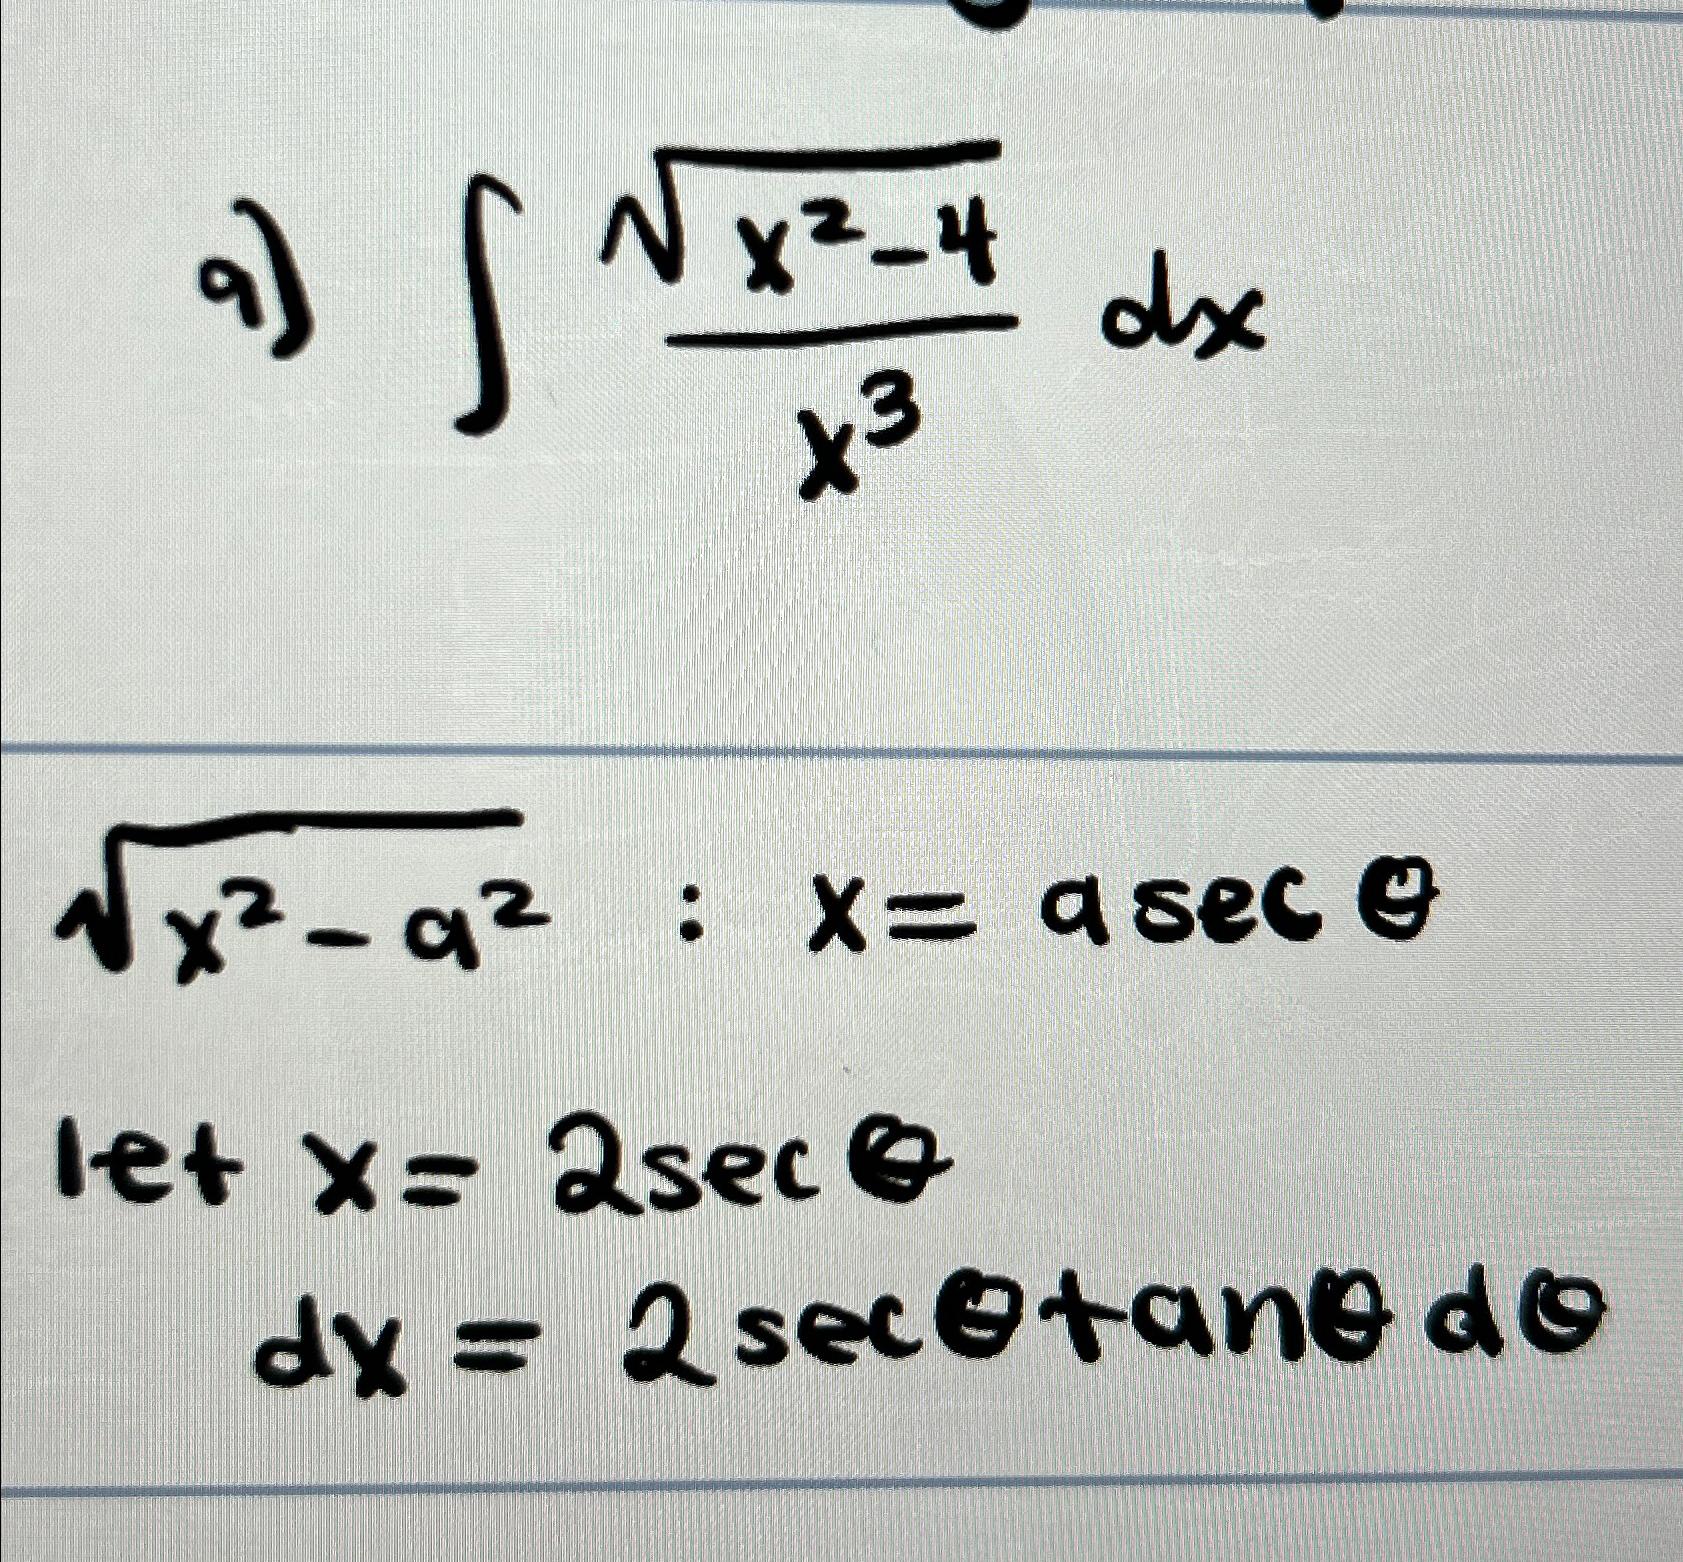 9) ∫ √(x² - 4) / x³ dx
√(x² - a²) : x = a sec θ
let x = 2 sec θ
dx = 2 sec θ tan θ dθ